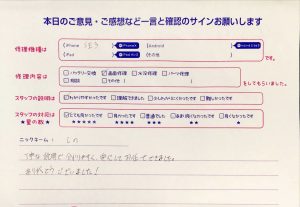 本日のご意見・ご感想など一言と確認のサインお願いします
修理機種は
iPhone SE3
Android
iPad
その他
です。
修理内容は
バッテリー交換 画面修理 水没修理 パーツ修理
相談 その他
をしてもらいました。
スタッフの説明は
わかりやすかったです 理解できました 少しわかりにくかったです 難しかったです
スタッフの対応は
★星の数★
とても良かったです 良かったです 普通でした あまり良くなかったです 良くなかったです
★★★★★ ★★★★ ★★★ ★★ ★
ニックネーム：
丁寧な説明で
安心してお任せできました。
ありがとうございました！